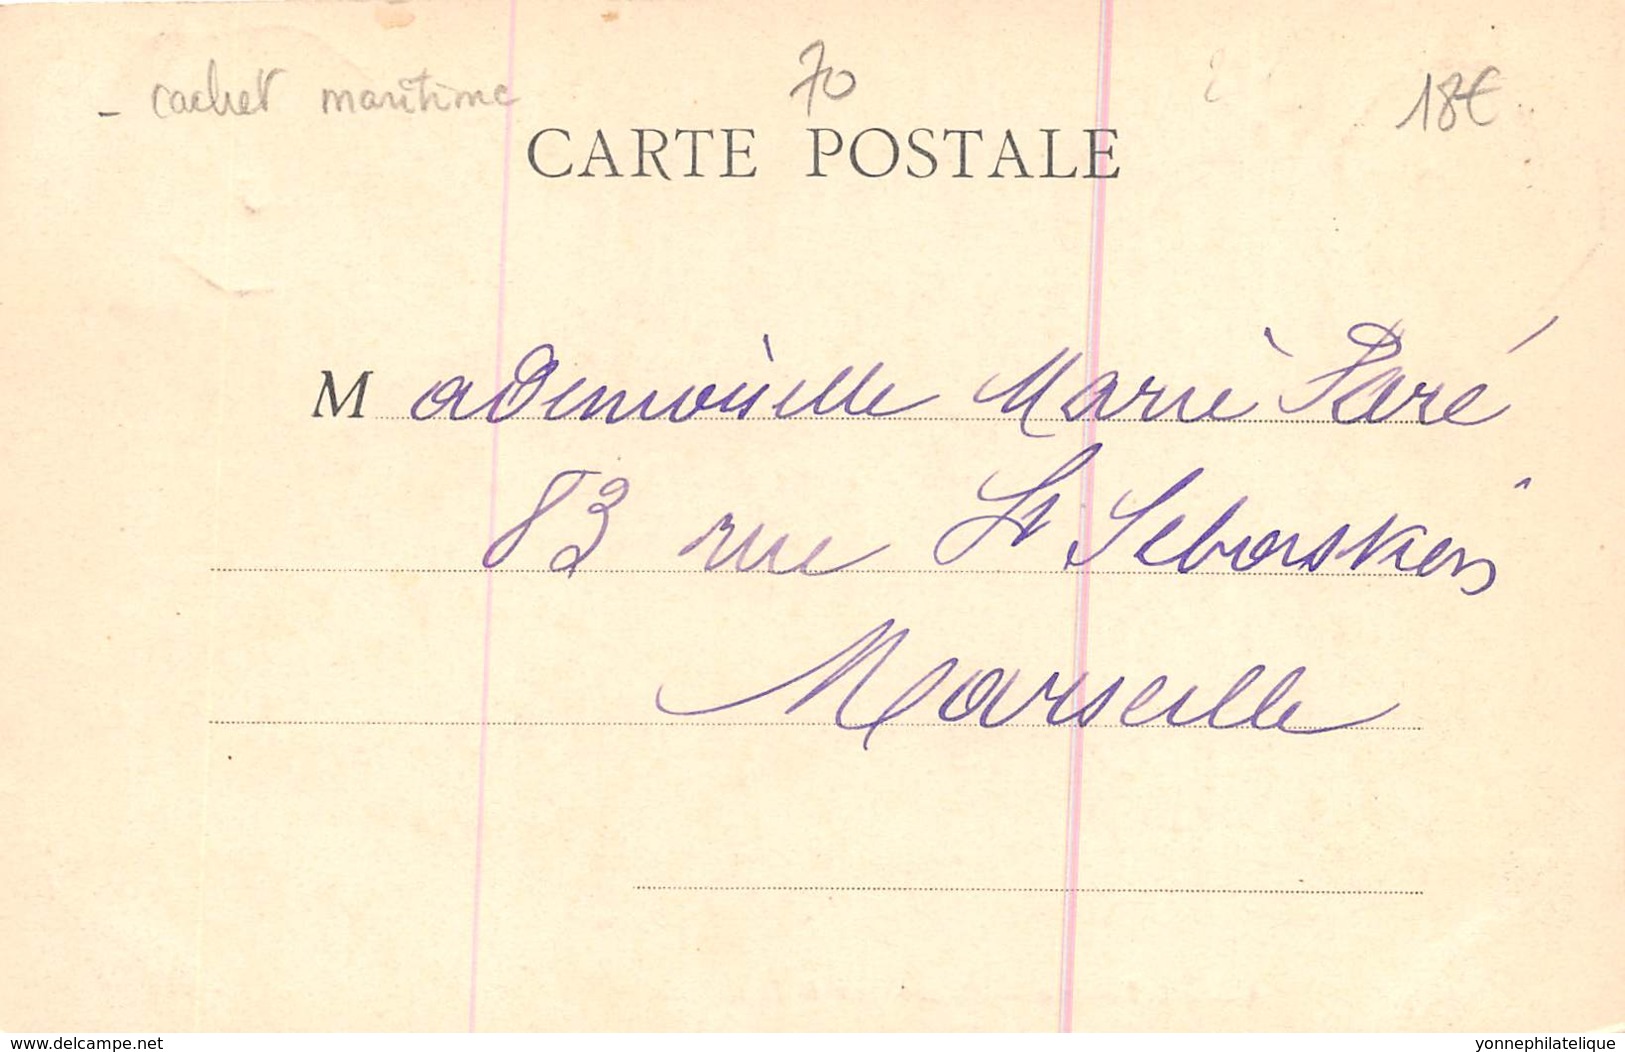 - cachet maritime
70
18€
CARTE POSTALE
Mademoiselle Marie Paré
83 rue St Sebastien
Marseille
www.delcampe.net
yonnephilatelique